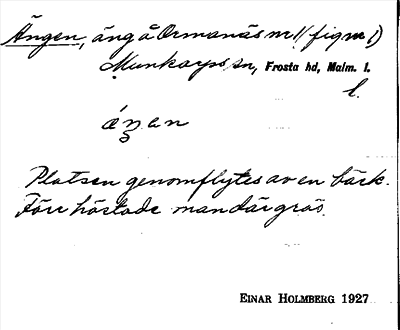 Ängen, äng å Ormanäs nr 1 (fig nr 1)
Munkarps sn, Frosta hd, Malm. l.
l.
áŋan
Platsen genomflytes av en bäck.
Förr höstade man där gräs.
EINAR HOLMBERG 1927